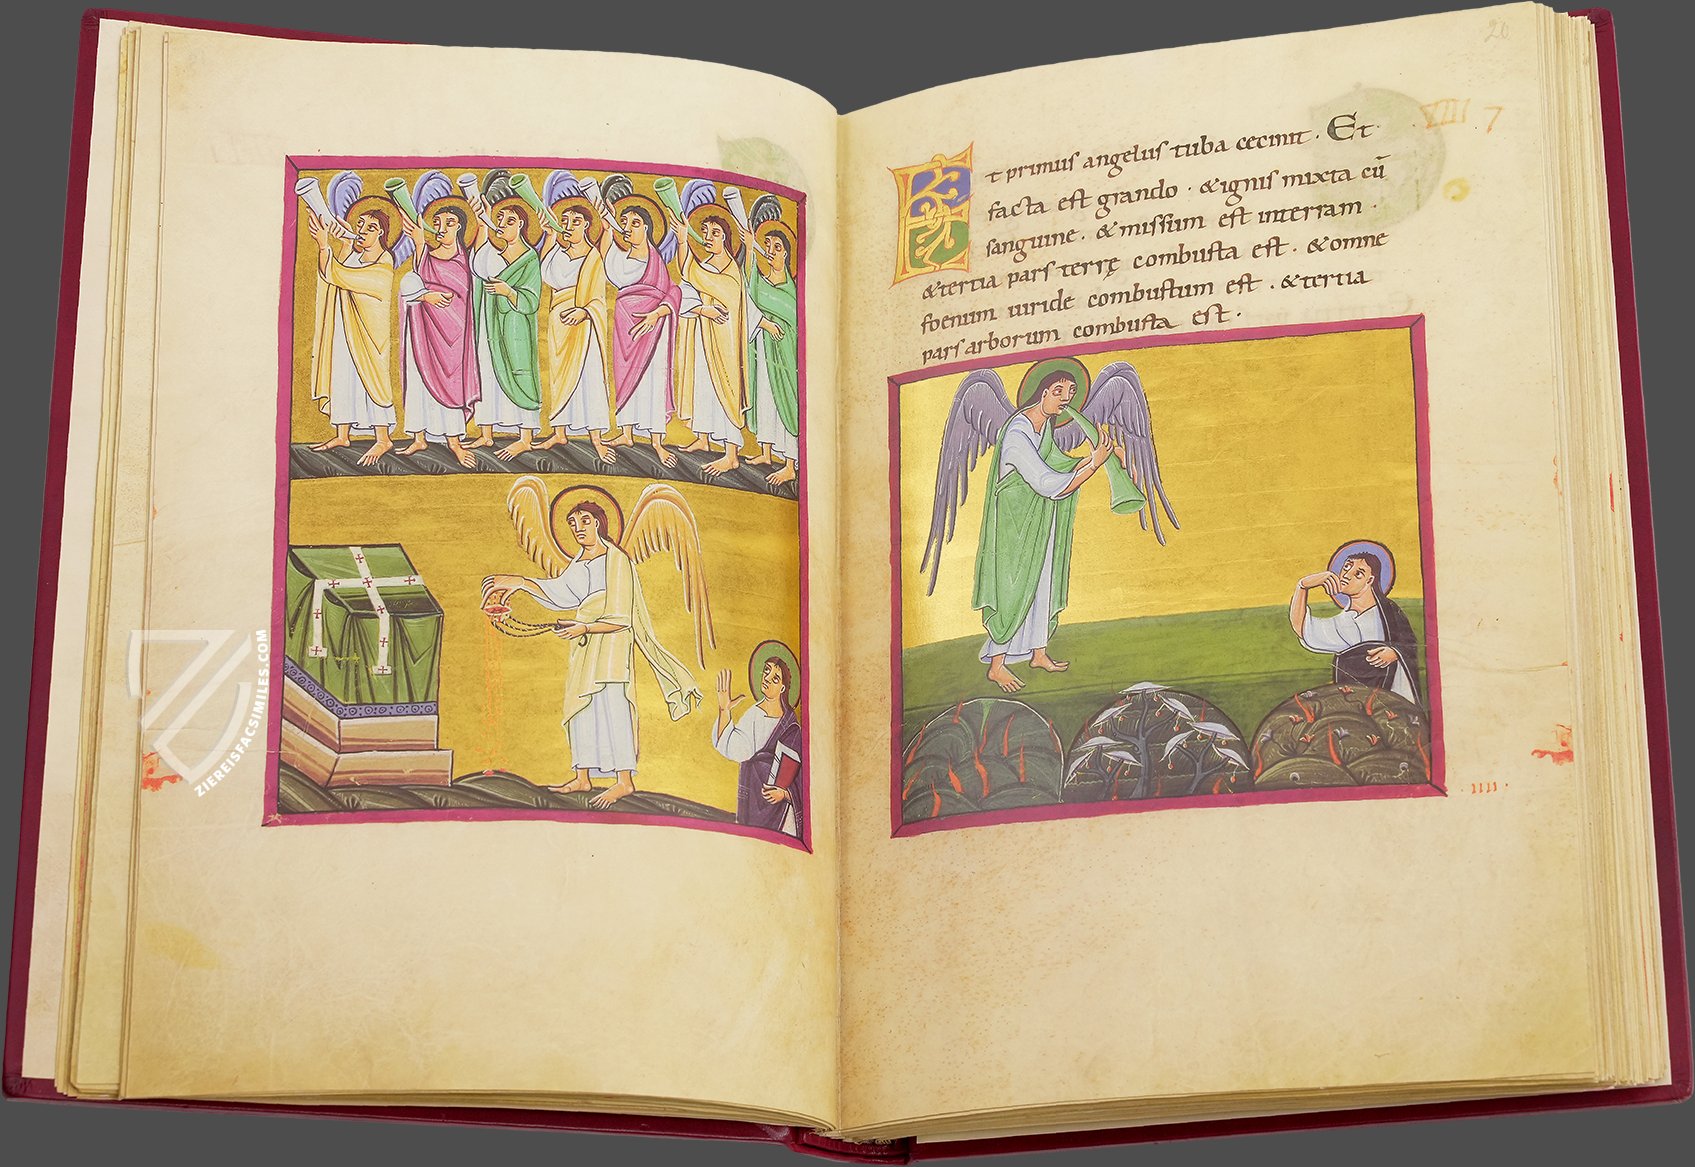 ZIEREISFACSIMILES.COM
20
VIIII 7
Et primus angelus tuba cecinit. Et
facta est grando. & ignis mixta cū
sanguine. & missum est interram.
& tertia pars terrę combusta est. & omne
foenum uiride combustum est. & tertia
pars arborum combusta est.
. IIII .